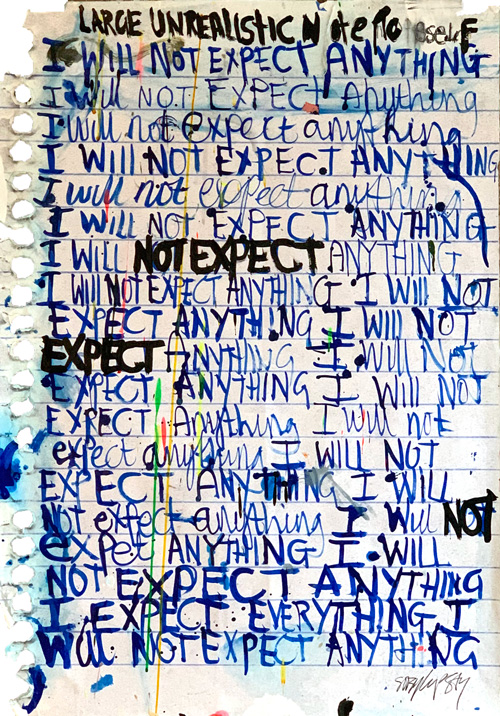 LARGE UNREALISTIC Note To self
I WILL NOT EXPECT ANYTHING
I Will NOT EXPECT Anything
I will not expect anything
I WIll NOT EXPECT ANYTHING
I will not expect anything
I WIll NOT EXPECT ANYTHING
I WIll NOT EXPECT ANYTHING
I WIll NOT EXPECT ANYTHING I WIll NOT
EXPECT ANYTHING I WIll NOT
EXPECT ANYTHING I Will Not
EXPECT ANYTHING I WIll NOT
EXPECT Anything I will not
expect anything I WILL NOT
EXPECT ANYTHING I WILL
NOT expect anything I Will NOT
expect ANYTHING I WILL
NOT EXPECT ANYTHING
I EXPECT EVERYTHING I
Will NOT EXPECT ANYTHING